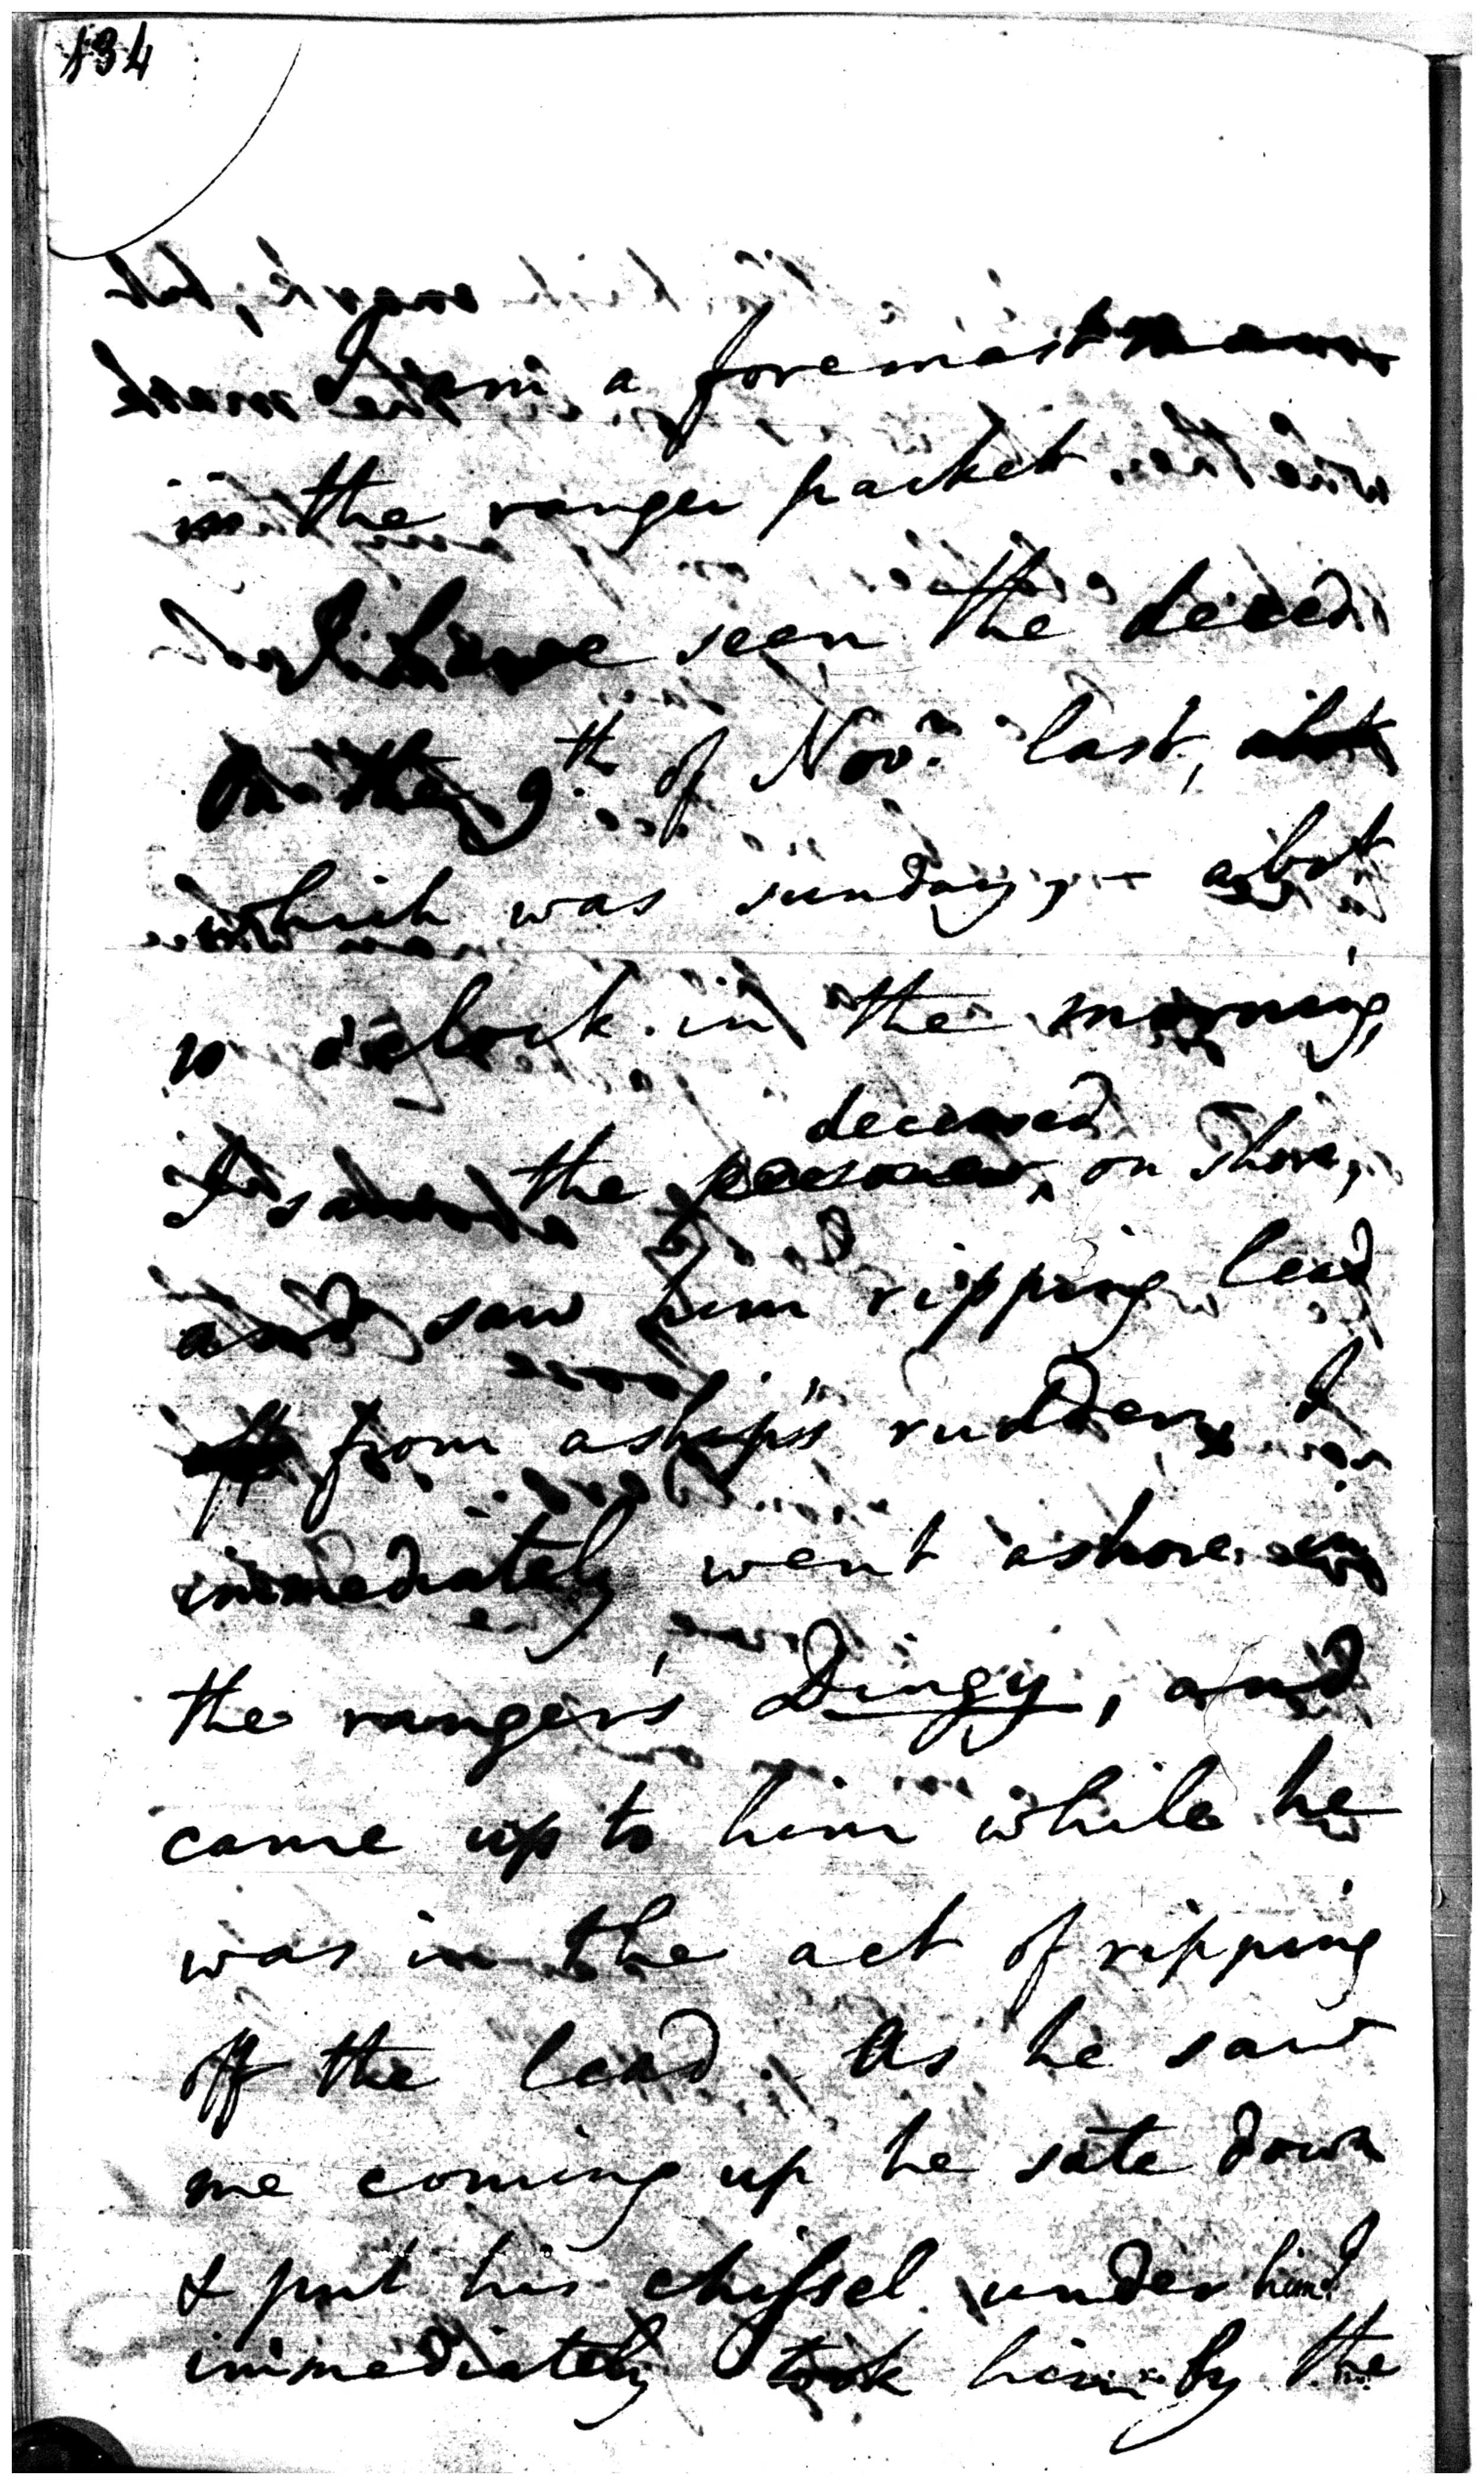 134
I am a foremast man
in the ranger packet.
I have seen the deced
On the 9th of Novr. last,
which was sunday, – abot
10 o'clock in the morning,
deceased
I saw the prisoner, on shore,
and saw him ripping lead
from a ship's rudder, I
immediately went ashore in
the ranger's Dingy, and
came up to him while he
was in the act of ripping
off the lead. As he saw
me coming up he sate down
& put his chissel under him I
immediately took him by the